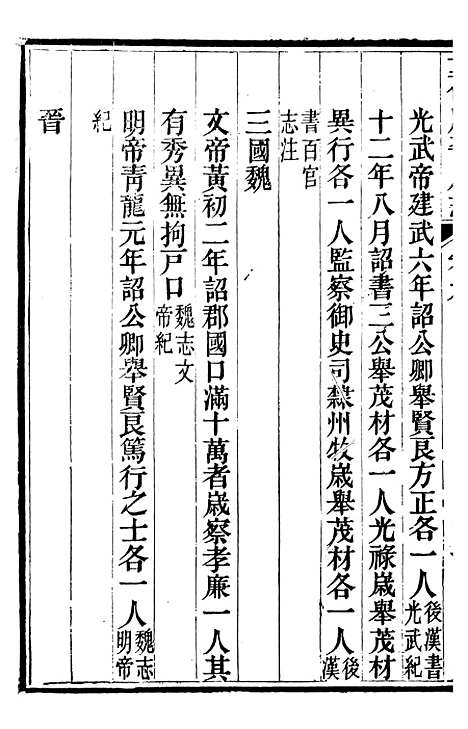 光武帝建武六年詔公卿舉賢良方正各一人後漢書光武紀
十二年八月詔書三公舉茂材各一人光祿歲舉茂材
異行各一人監察御史司隸州牧歲舉茂材各一人後漢
書百官志注
三國魏
文帝黃初二年詔郡國口滿十萬者歲察孝廉一人其
有秀異無拘戸口魏志文帝紀
明帝靑龍元年詔公卿舉賢良篤行之士各一人魏志明帝
紀
晉